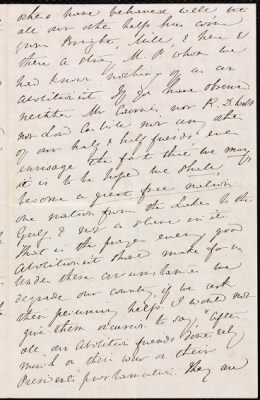 others have behaved well but
all our other helps has come
from Bright, Mill, & here &
there a stray M. P. whom we
had known nothing of as an
Abolitionist If you have observed
neither Mr Cairnes, nor R. D. Webb
nor Lord Carlisle nor any other
of our half & half friends, ever
envisage the fact that we may,
it is to be hope we shall,
become a great free nation
one nation from the Lakes to the
Gulf, & not a slave in it.
That is the prayer every good
Abolitionist should make for us
Under these circumstances we
degrade our country if we ask
their pecuniary help. I would not
give them occasion to say, "After
all our Abolition friends don't rely
much on their war or their
President's proclamation. They are